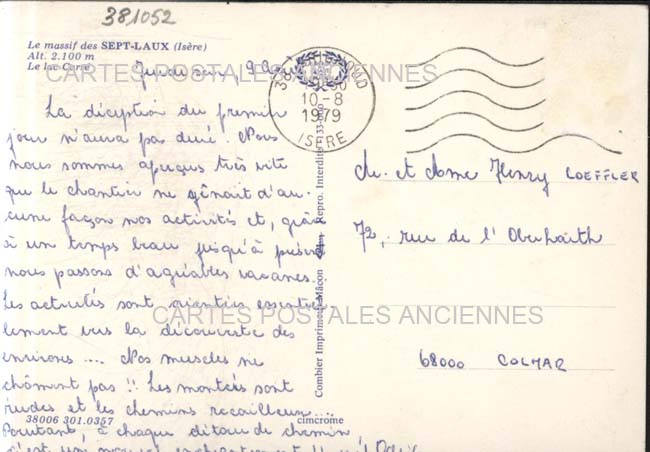 381052
Le massif des SEPT-LAUX (Isère)
Alt. 2.100 m
Le lac Carré
CARTES POSTALES ANCIENNES
10-8
1979
ISERE
La déception du premier
jour n'aura pas duré. Nous
nous sommes aperçus très vite
que le chantier ne gênait d'au-
cune façon nos activités et, grâce
à un temps beau jusqu'à présent
nous passons d'agréables vacances.
Les activités sont orientées essentiel
lement vers la découverte des
environs .... Nos muscles ne
chôment pas !! Les montées sont
rudes et les chemins rocailleux...
Pourtant, à chaque détour de chemin
c'est un nouvel enchantement !!
Combier Imprimeur Mâcon Repro. Interdite
38006 301.0357
cimcrome
M. et Mme Henry LOEFFLER
72, rue de l'Oberharth
68000 COLMAR
CARTES POSTALES ANCIENNES